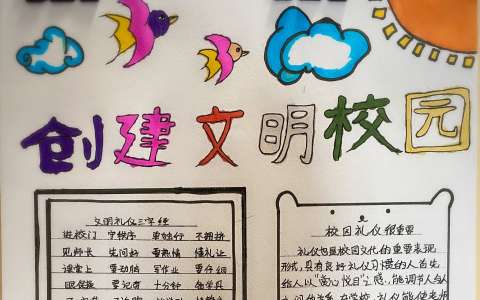 创建文明校园
文明礼仪三字经
进校门 守秩序 不拥挤
见师长 先问好 要热情
课堂上 要动脑 写作业 要仔细
眼保操 十分钟
校园礼仪很重要
礼仪也是校园文化的重要表现
形式,具有良好礼仪习惯的人首先
给人以“赏心悦目”之感,能调节人与人
之间的关系,在学校,礼仪能